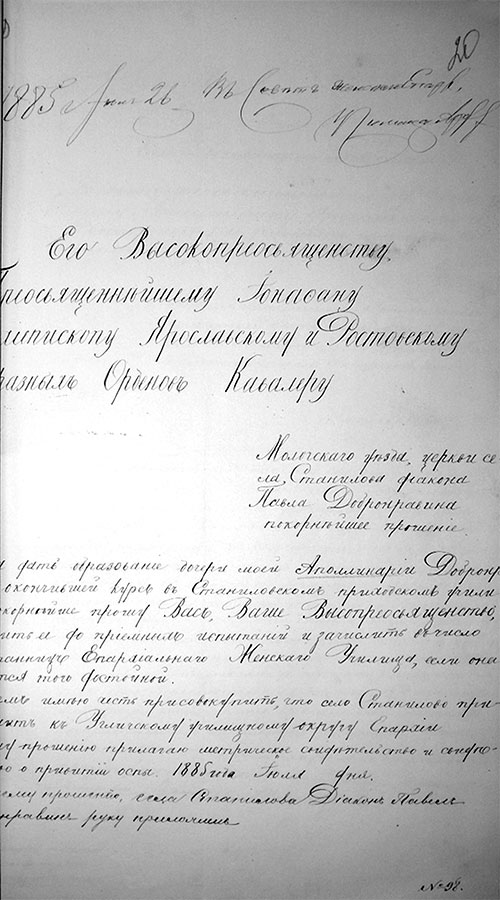 20
1885 г. Июля 26. Въ Советъ
Его Высокопреосвященству,
Преосвященнѣйшему Іонаѳану
Архіепископу Ярославскому и Ростовскому
разныхъ Орденовъ Кавалеру
Мологскаго уѣзда, церкви се
ла Станилова діакона
Павла Добронравина
покорнѣйшее прошеніе.
дать образованіе дочери моей Аполлинаріи Добронр
окончившей курсъ въ Станиловскомъ приходскомъ учили
корнѣйше прошу Васъ, Ваше Высокопреосвященство,
тить ее до пріемныхъ испытаній и зачислить въ число
танницъ Епархіальнаго Женскаго Училища, если она
тся того достойной.
емъ имѣю честь присовокупить, что село Станилово при
итъ къ Угличскому училищному округу Епархіи
му прошенію прилагаю метрическое свидѣтельство и свидѣ-
во о привитіи оспы. 1885 года Іюля дня.
ему прошенію, села Станилова Діаконъ Павелъ
нравинъ руку приложилъ
№ 98.